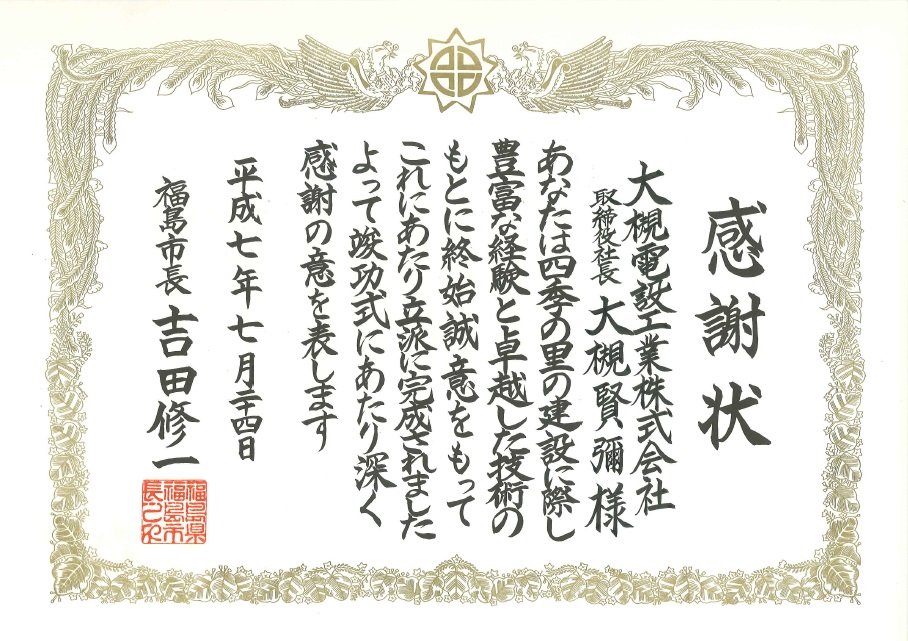 感謝状
大槻電設工業株式会社
取締役社長 大槻賢彌様
あなたは四季の里の建設に際し
豊富な経験と卓越した技術の
もとに終始誠意をもって
これにあたり立派に完成されました
よって竣功式にあたり深く
感謝の意を表します
平成七年七月二十四日
福島市長 吉田修一
福島県
福島市
長之印